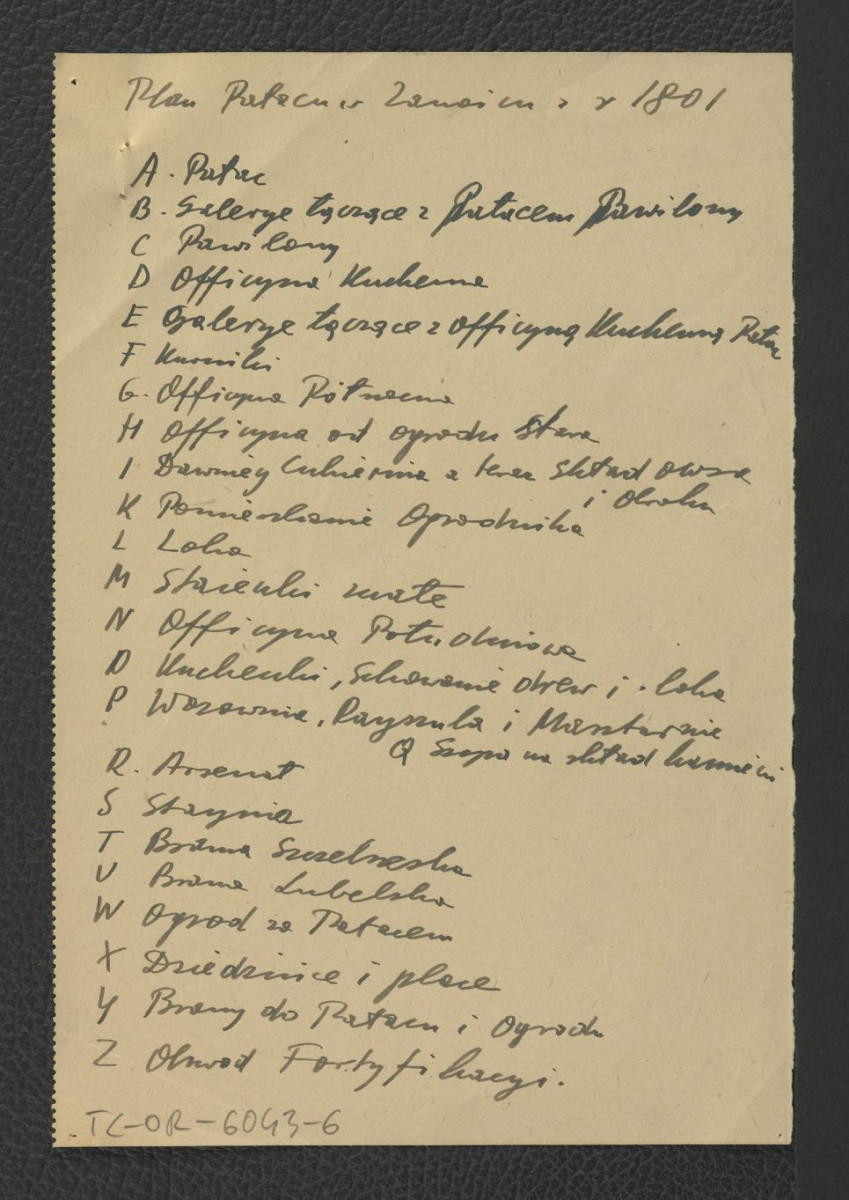 Plan Pałacu w Zamościu z r 1801
A. Pałac
B. Galerye łączące z Pałacem Pawilony
C Pawilony
D Officyna Kuchenna
E Galerye łączące z officyną Kuchenną Pałac
F Kurniki
G. Officyna Północna
H Officyna od ogrodu Stara
I Dawniey Cukiernia a teraz skład owsa
i obroku
K Pomieszkanie Ogrodnika
L Loka
M Staienki małe
N Officyna Południowa
O Kuchenki, schowanie drew i loka
P Wozownia, Rayszula i Masztarnie
Q Szopa na skład kamieni
R. Arsenał
S Staynia
T Brama Szczebrzeska
V Brama Lubelska
W Ogrod za Pałacem
X Dziedzińce i place
Y Bramy do Pałacu i Ogrodu
Z Obwod Fortyfikacyi.
TC-OR-6043-6